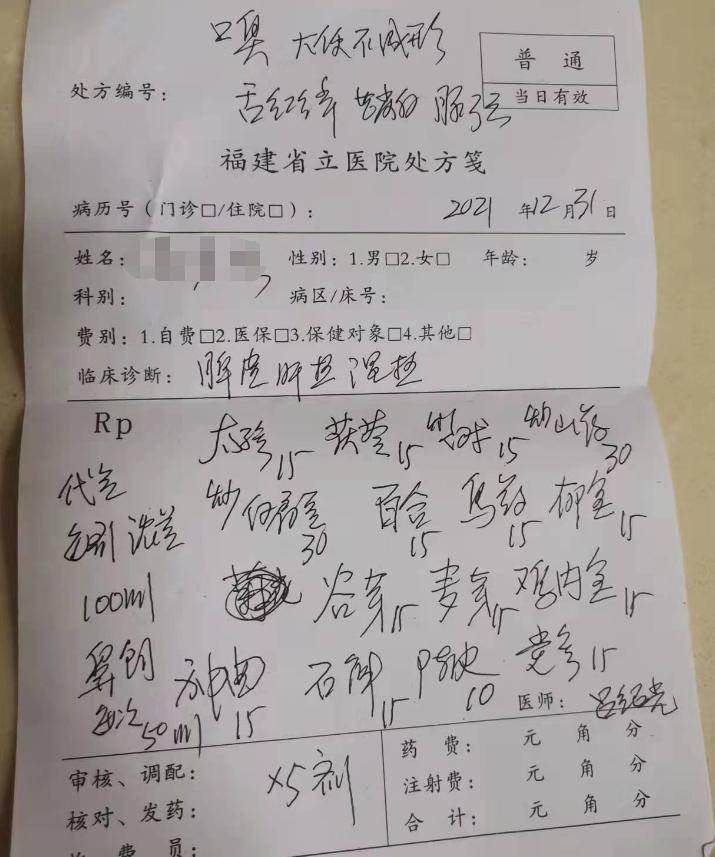 口臭 大便不成形
普通
处方编号：
当日有效
舌红 苔黄 脉弦
福建省立医院处方笺
病历号（门诊□/住院□）： 2021 年12月31日
姓名： 性别：1.男□2.女□ 年龄： 岁
科别： 病区/床号：
费别：1.自费□2.医保□3.保健对象□4.其他□
临床诊断：脾虚肝旺湿
Rp
太子参15 茯苓15 15 炒山药30
代煎
炒30 百合15 乌药15 郁金15
浓煎
100ml 谷芽15 麦芽15 鸡内金15
每次50ml 神曲15 石斛15 陈皮10 党参15
医师：
审核、调配： ×5剂 药费： 元 角 分
核对、发药： 注射费： 元 角 分
合计： 元 角 分
费员：